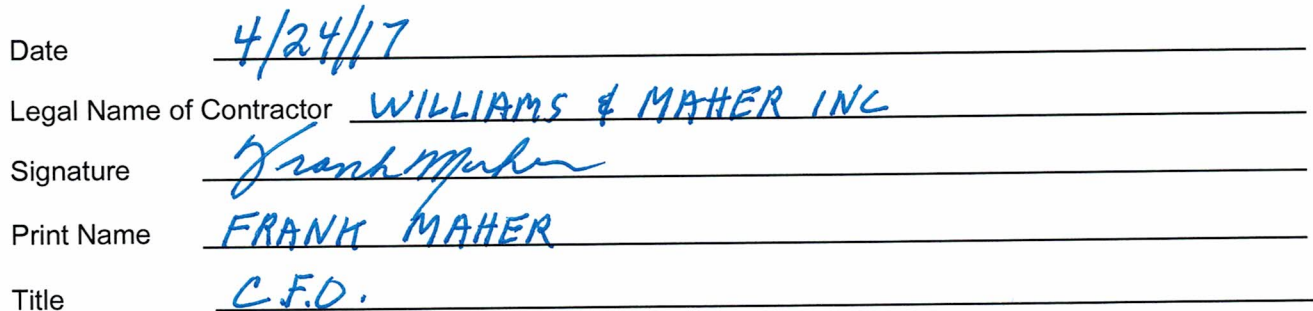 Date 4/24/17
Legal Name of Contractor WILLIAMS & MAHER INC
Signature Frank Maher
Print Name FRANK MAHER
Title C.F.O.